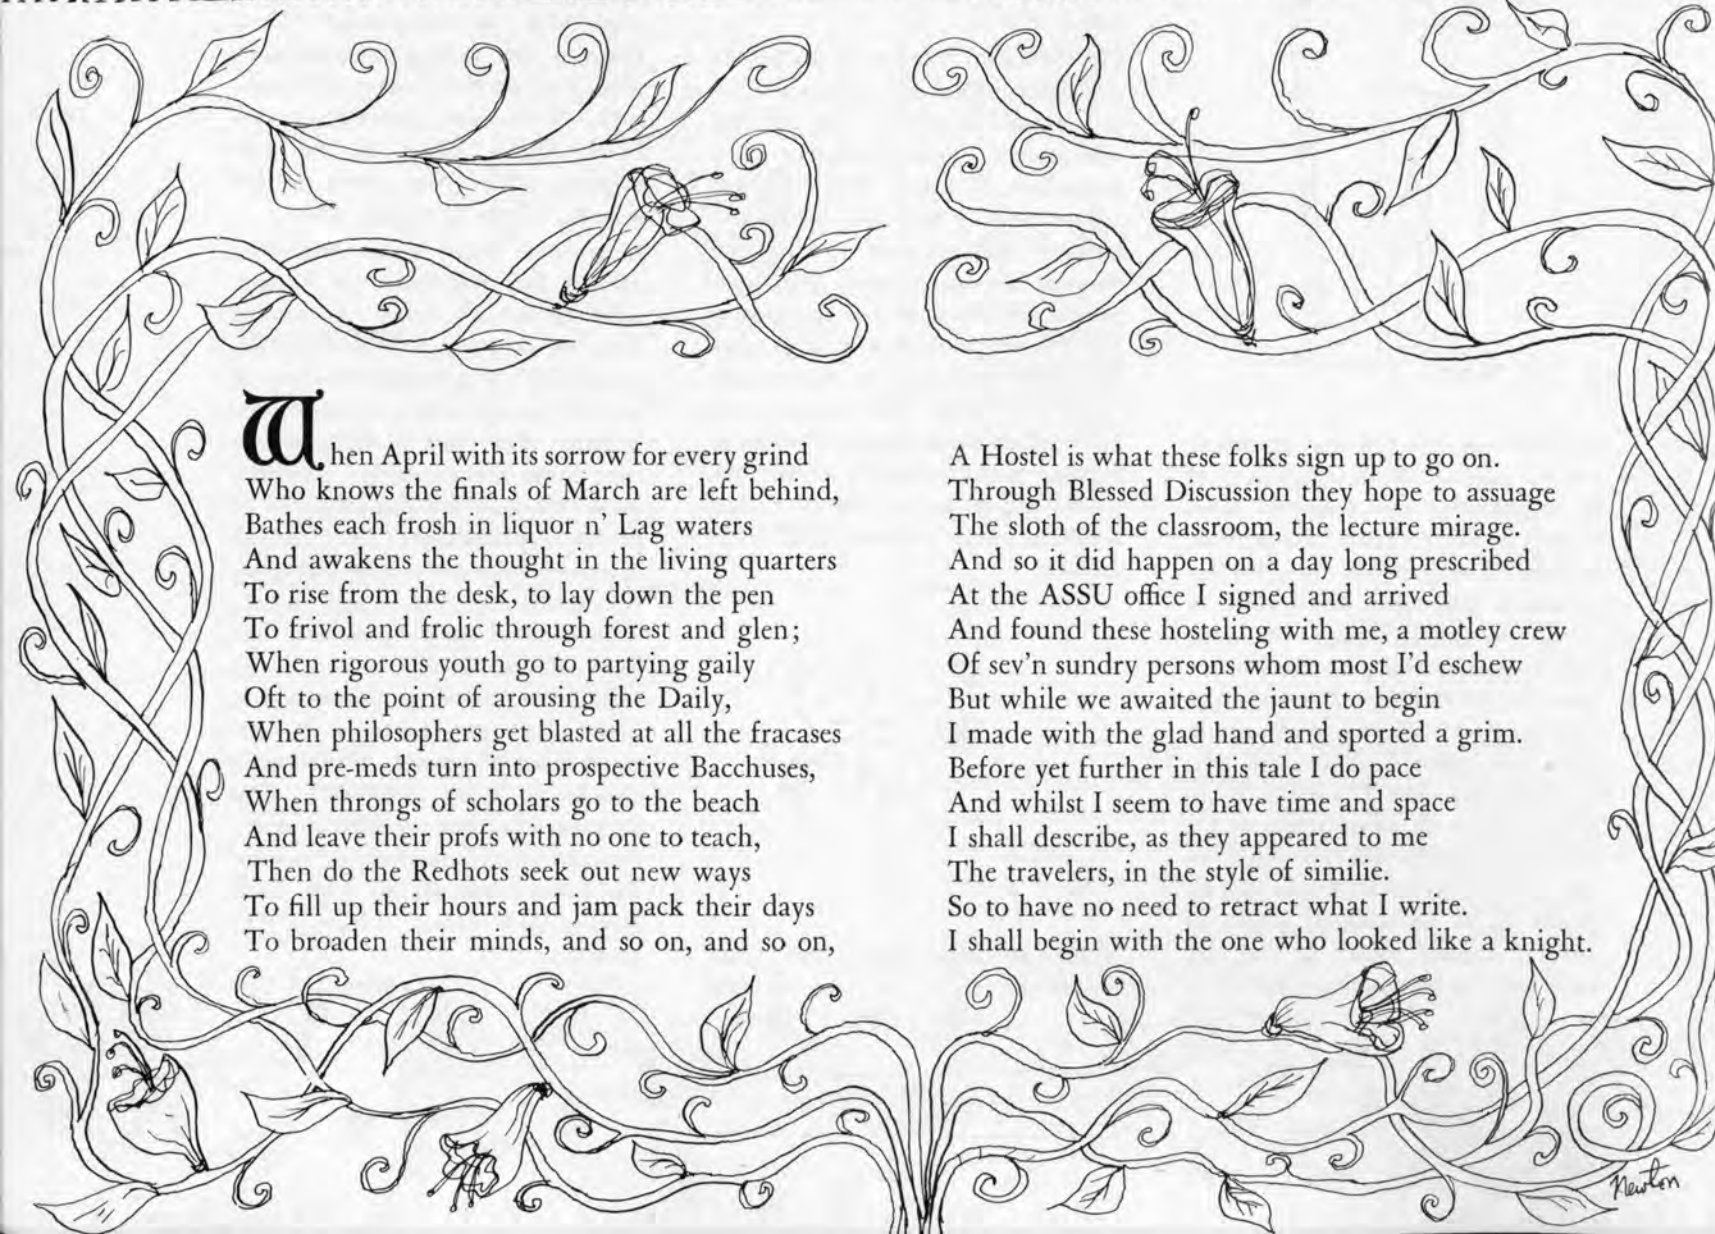 When April with its sorrow for every grind
Who knows the finals of March are left behind,
Bathes each frosh in liquor n' Lag waters
And awakens the thought in the living quarters
To rise from the desk, to lay down the pen
To frivol and frolic through forest and glen;
When rigorous youth go to partying gaily
Oft to the point of arousing the Daily,
When philosophers get blasted at all the fracases
And pre-meds turn into prospective Bacchuses,
When throngs of scholars go to the beach
And leave their profs with no one to teach,
Then do the Redhots seek out new ways
To fill up their hours and jam pack their days
To broaden their minds, and so on, and so on,
A Hostel is what these folks sign up to go on.
Through Blessed Discussion they hope to assuage
The sloth of the classroom, the lecture mirage.
And so it did happen on a day long prescribed
At the ASSU office I signed and arrived
And found these hosteling with me, a motley crew
Of sev'n sundry persons whom most I'd eschew
But while we awaited the jaunt to begin
I made with the glad hand and sported a grim.
Before yet further in this tale I do pace
And whilst I seem to have time and space
I shall describe, as they appeared to me
The travelers, in the style of similie.
So to have no need to retract what I write.
I shall begin with the one who looked like a knight.
Newton